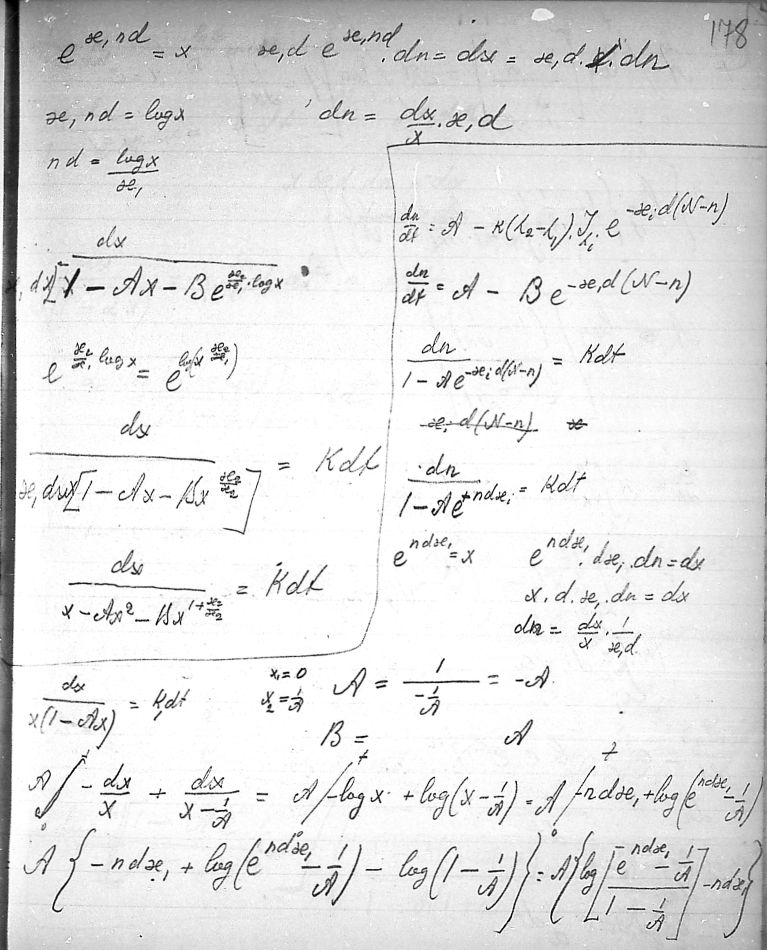 178
e^{æ₁nd} = x   æ₁d e^{æ₁nd}. dn = dx = æ₁d. x. dn
æ₁ nd = log x   dn = dx/x . æ₁d
nd = log x / æ₁
dx / æ₁dx[1 – Ax – Be^{æ₂/æ₁ . log x}
e^{æ₂/æ₁ log x} = e^{log(x^{æ₂/æ₁})}
dx / æ₁dx[1 – Ax – Bx^{æ₂/æ₂}] = Kdt
dx / x – Ax² – Bx^{1+æ₂/æ₂} = Kdt
dn/dt = A – κ(h₂–h₁). J_{h₁}. e^{–æ₁d(N–n)}
dn/dt = A – Be^{–æ₁d(N–n)}
dn / 1 – Ae^{–æ₁d(N–n)} = Kdt
–æ₁d(N–n) æ
dn / 1 – Ae^{+ndæ₁} = Kdt
e^{ndæ₁} = x   e^{ndæ₁}. dæ₁. dn = dx
x. d. æ₁. dn = dx
dn = dx/x . 1/æ₁d
dx / x(1 – Ax) = Kdt   x₁ = 0   x₂ = 1/A   A = 1 / –1/A = –A
B =   A
A ∫ – dx/x + dx / x – 1/A = A / –log x + log(x – 1/A) = A / –ndæ₁ + log(e^{ndæ₁} – 1/A)
= A { –ndæ₁ + log(e^{ndæ₁} – 1/A) – log(1 – 1/A) } = A { log [ e^{ndæ₁} – 1/A / 1 – 1/A ] – ndæ₁ }